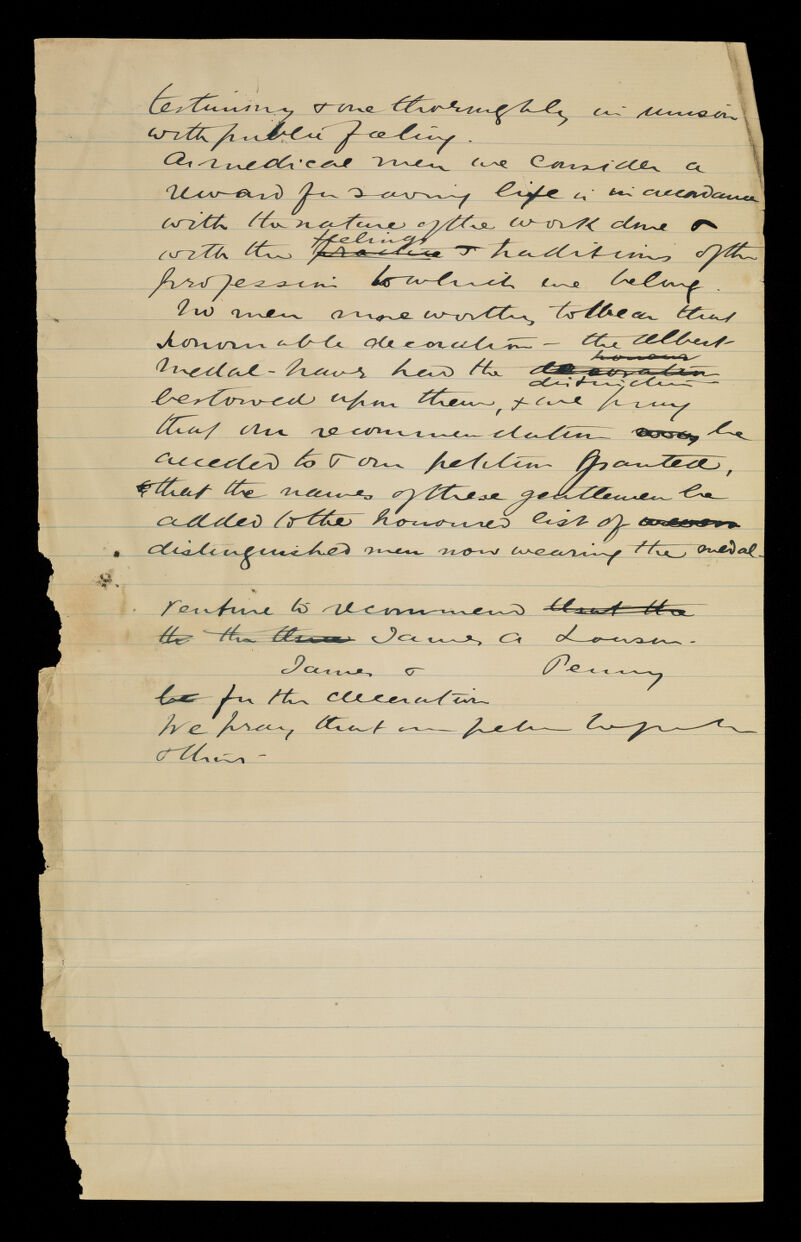 testimony & one thoroughly in unison
with public feeling.
As medical men we consider a
reward for saving life is in accordance
with the nature of the work done &
feelings
with the practice & traditions of the
profession to which we belong.
No men more worthy to bear that
honourable decoration - the Albert
honour
medal - have had the decoration
distinction
bestowed upon them, & we pray
that our recommendation may be
acceded to & our petition granted,
& that the names of these gentlemen be
added to the honoured list of
distinguished men now wearing the medal -
venture to recommend that the
the the three James A Lowson -
James & Penny
be for the decoration
We pray that our
others -